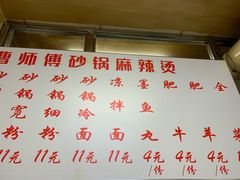 曹师傅砂锅麻辣烫
砂锅宽粉
11元
砂锅细粉
11元
砂锅冷面
11元
凉拌面
11元
墨鱼丸
4元/份
肥牛
4元/份
肥羊
4元/份